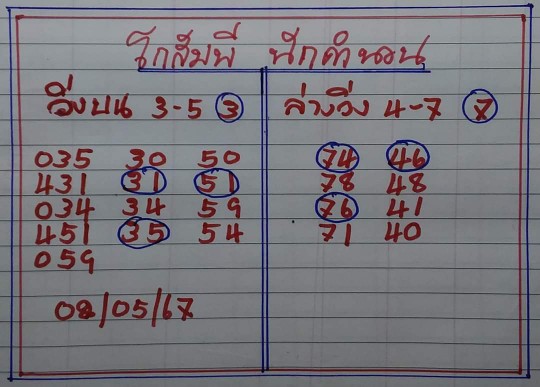 โกสัมพี นักคำนวน
วิ่งบน 3-5 3
035 30 50
431 31 51
034 34 59
451 35 54
059
02/05/67
ล่างวิ่ง 4-7 7
74 46
78 48
76 41
71 40